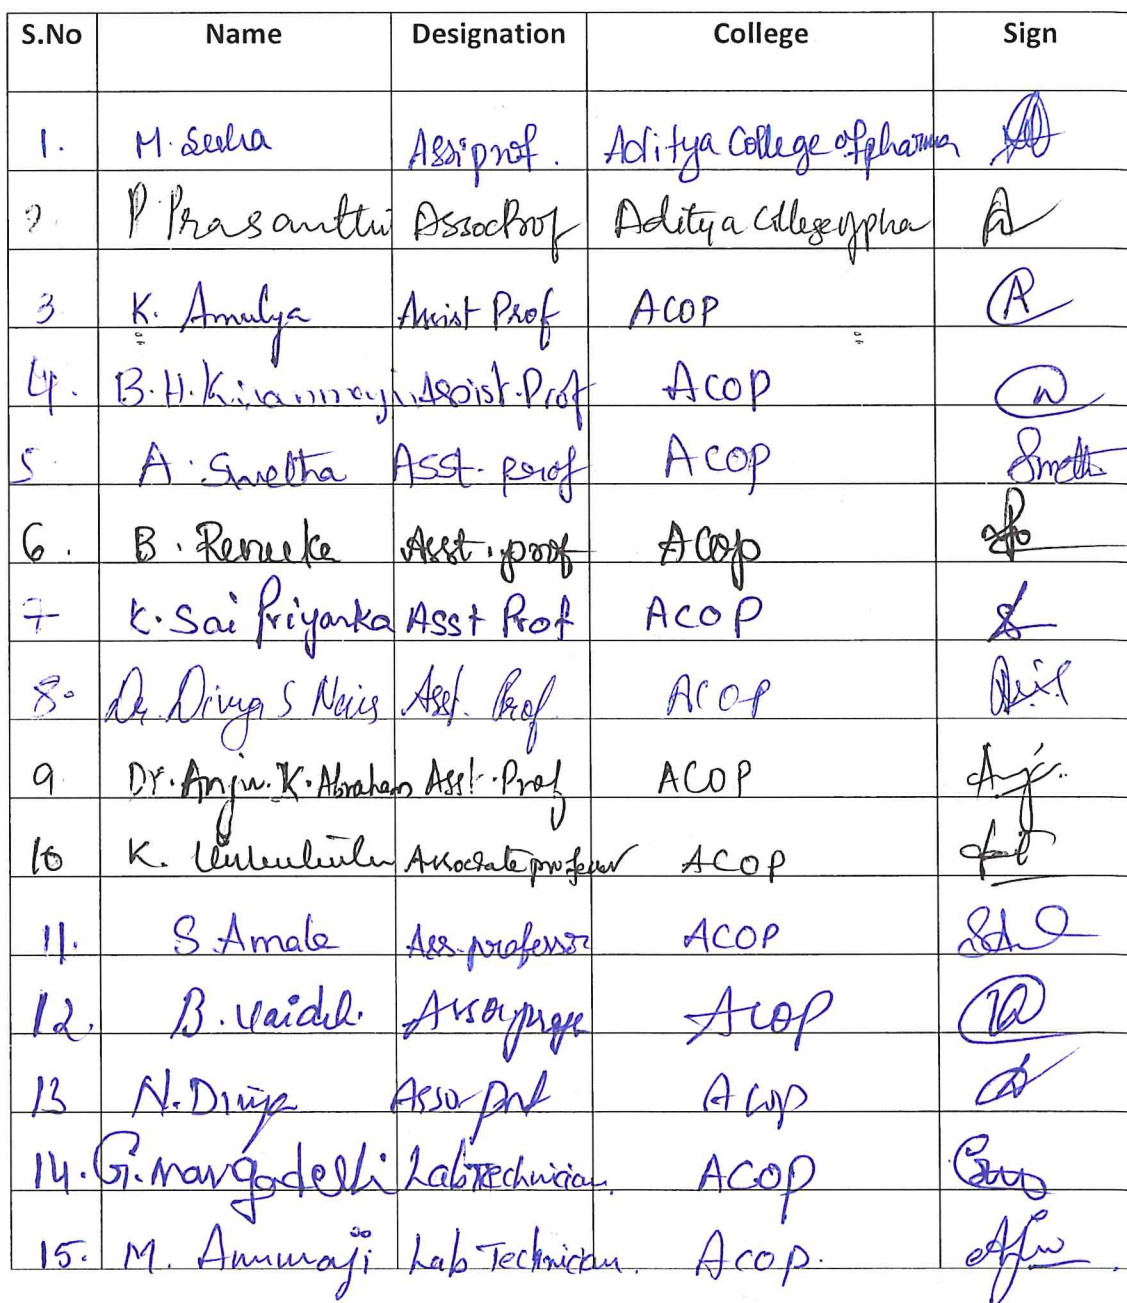 S.No Name Designation College Sign
1. M. Sudha Assi prof. Aditya College of pharma
2. P Prasanthi Assoc Prof Aditya College of pha
3 K. Amulya Assist Prof ACOP
4. B.H. Kiranmayi Assist. Prof ACOP
5. A. Swetha Asst. prof ACOP Swetha
6. B. Renuka Asst. prof ACOP
7 K. Sai Priyanka Asst Prof ACOP
8. Dr. Divya S Nair Asst. Prof ACOP
9 Dr. Anju. K. Abraham Asst. Prof ACOP
10 K. Associate professor ACOP
11. S. Amala Ass. professor ACOP
12. B. Vaideh. ACOP
13 N. Divya ACOP
14. G. Mangadevi Lab Technician. ACOP
15. M. Ammaji Lab Technician. ACOP.